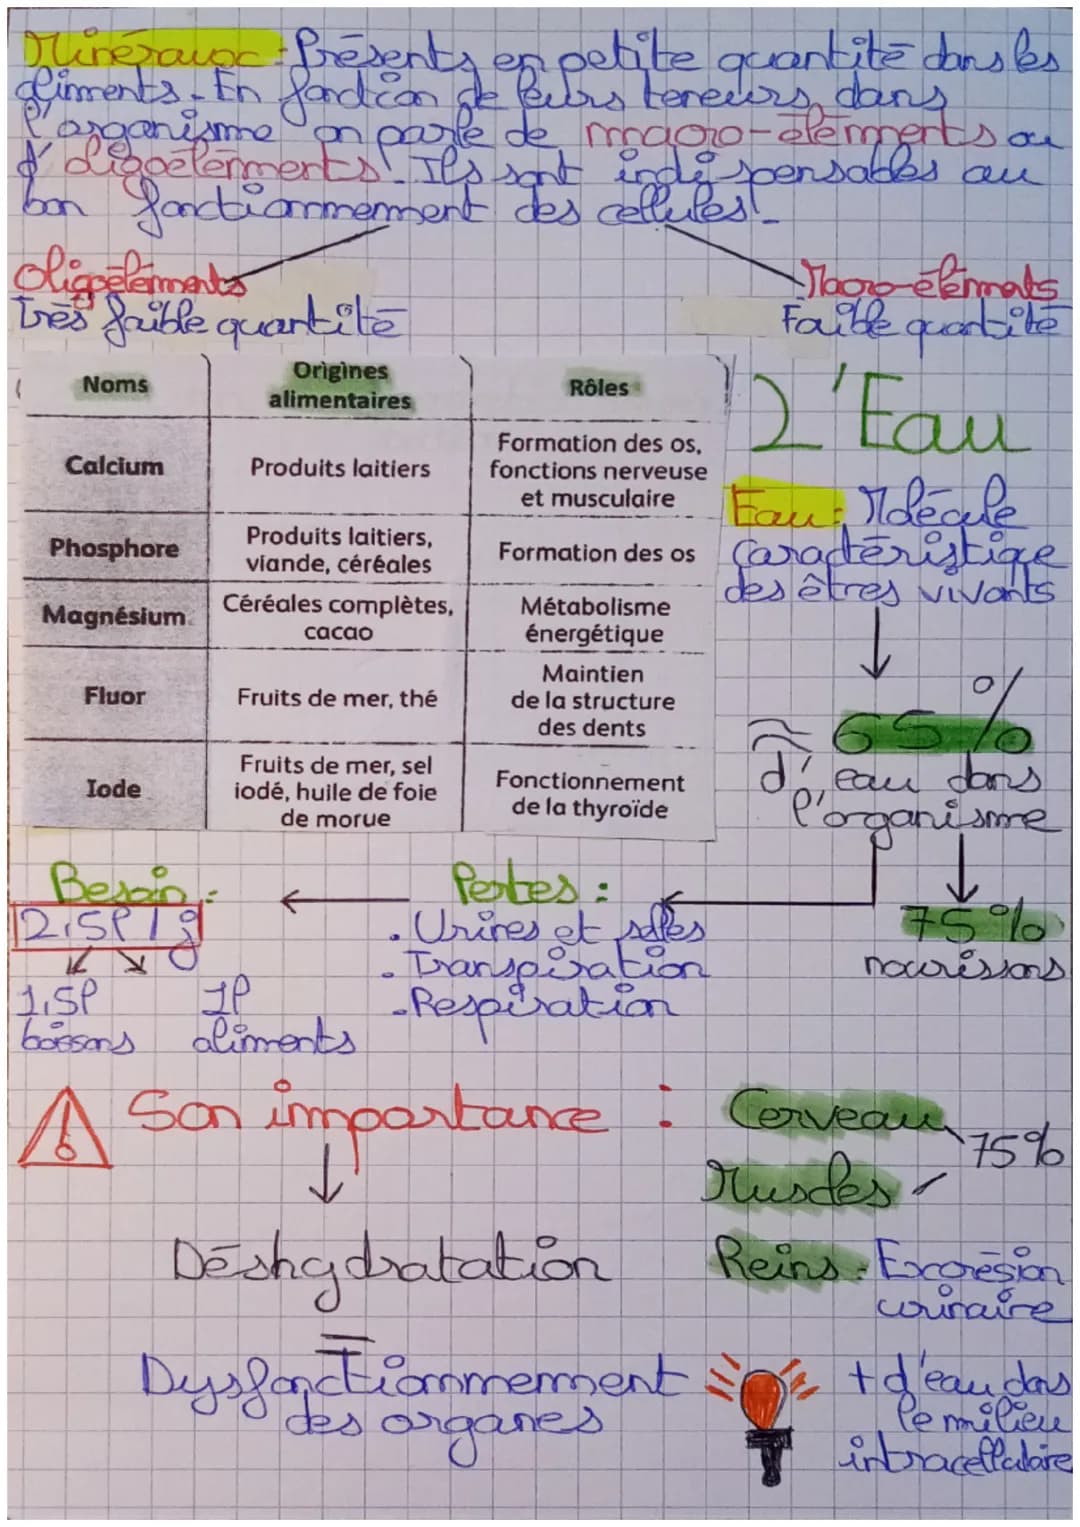 Minéraux : Présents en petite quantité dans les
aliments. En fonction de leurs teneurs dans
l'organisme on parle de macro-éléments ou
d'oligoéléments. Ils sont indispensables au
bon fonctionnement des cellules.
Oligoéléments
Très faible quantité
Macro-éléments
Faible quantité
Noms Origines alimentaires Rôles
Calcium Produits laitiers Formation des os, fonctions nerveuse et musculaire
Phosphore Produits laitiers, viande, céréales Formation des os
Magnésium Céréales complètes, cacao Métabolisme énergétique
Fluor Fruits de mer, thé Maintien de la structure des dents
Iode Fruits de mer, sel iodé, huile de foie de morue Fonctionnement de la thyroïde
L'Eau
Eau : Molécule
caractéristique
des êtres vivants
≈ 65%
d'eau dans
l'organisme
75%
nourissons
Pertes :
. Urines et selles
. Transpiration
. Respiration
Besoin :
2,5l / j
1,5l
boissons
1l
aliments
Son importance :
Déshydratation
=
Dysfonctionnement
des organes
Cerveau
Muscles
75%
Reins : Excrésion
urinaire
+ d'eau dans
le milieu
intracellulaire